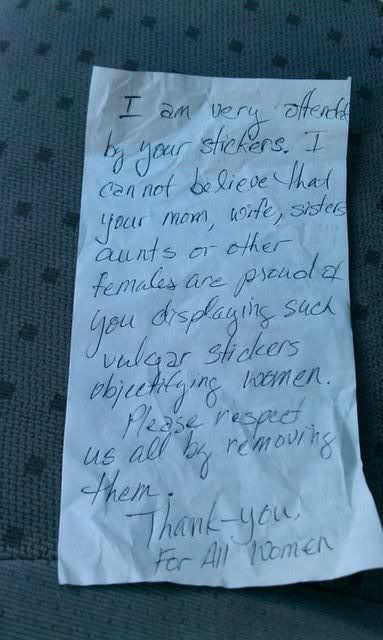 I am very offended
by your stickers. I
can not believe that
your mom, wife, sisters
aunts or other
females are proud of
you displaying such
vulgar stickers
objectifying women.
Please respect
us all by removing
them.
Thank-you,
For All Women